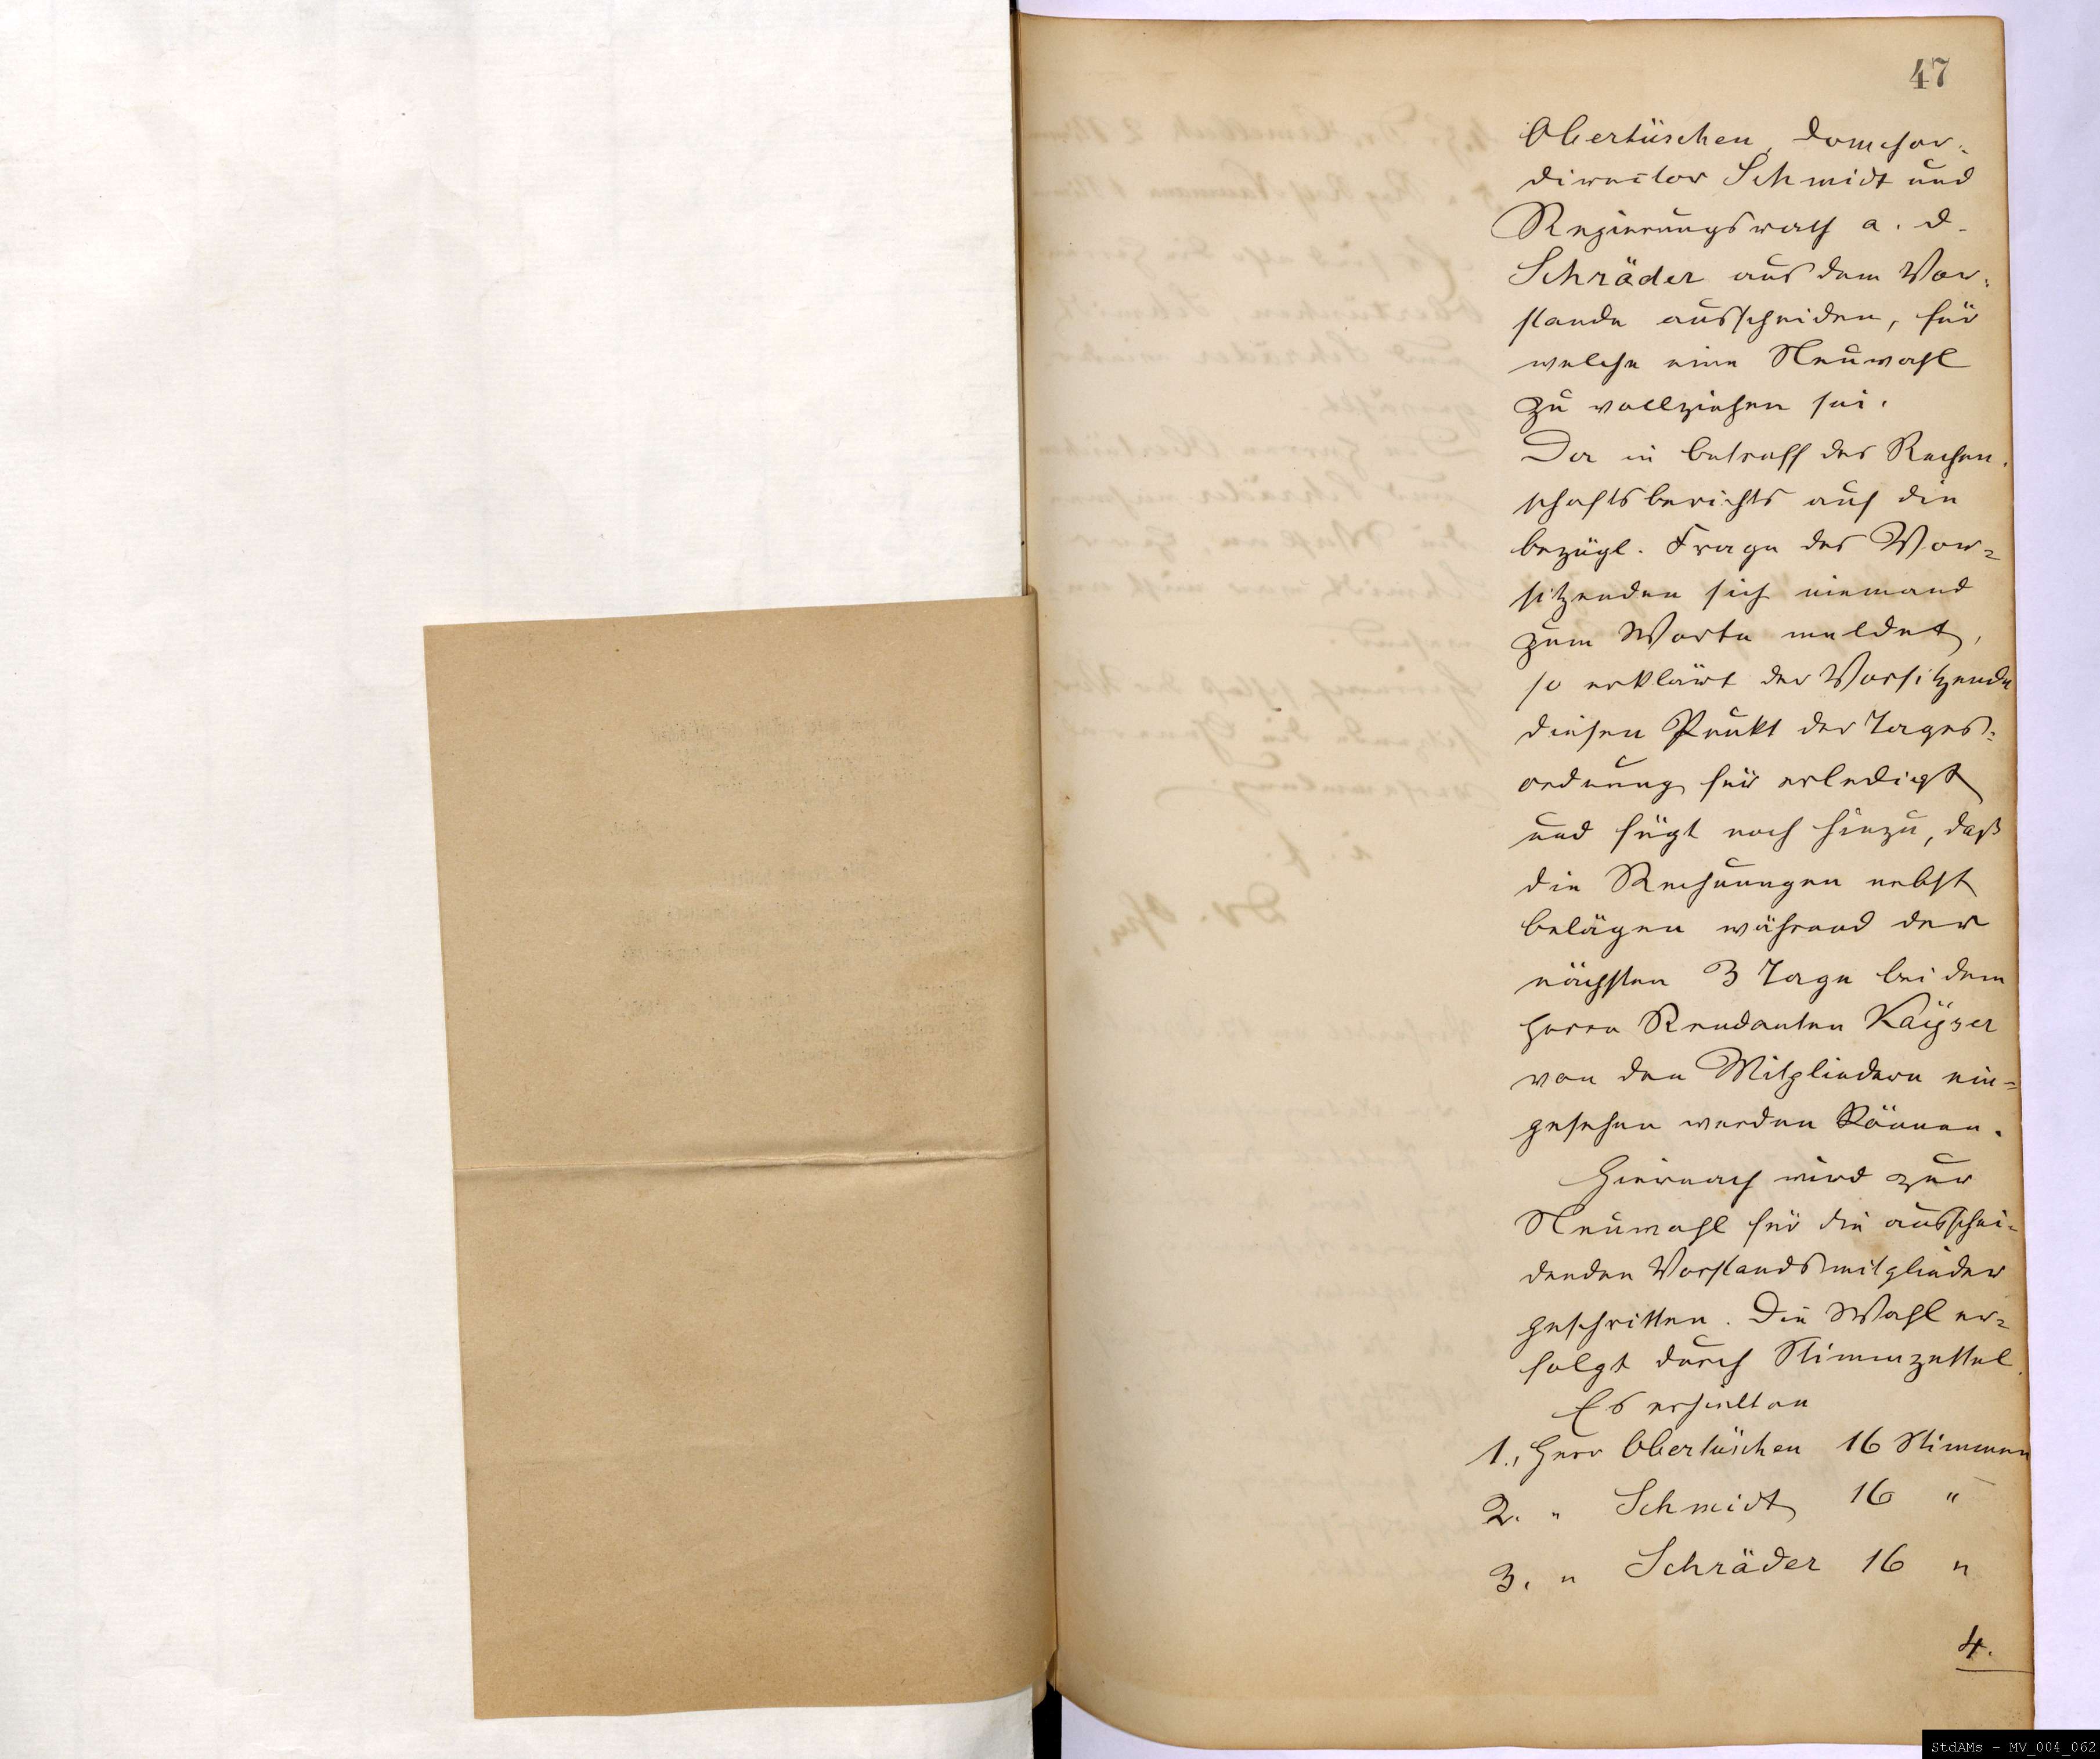 47
Obertüschen, Domchor-
director Schmidt und
Regierungsrath a. D.
Schräder aus dem Vor-
stande ausscheiden, für
welche eine Neuwahl
zu vollziehen sei.
Da in betreff des Rechen-
schaftsberichts auf die
bezügl. Frage des Vor-
sitzenden sich niemand
zum Worte meldet,
so erklärt der Vorsitzende
diesen Punkt der Tages-
ordnung für erledigt
und fügt noch hinzu, daß
die Rechnungen nebst
belägen während der
nächsten 3 Tage bei dem
Herrn Rendanten Kayser
von den Mitgliedern ein-
gesehen werden können.
Hiernach wird zur
Neuwahl für die ausschei-
denden Vorstandsmitglieder
geschritten. Die Wahl er-
folgt durch Stimmzettel.
Es erhielten
1., Herr Obertüschen 16 Stimmen
2. " Schmidt 16 "
3. " Schräder 16 "
4.
StdAMs - MV_004_062